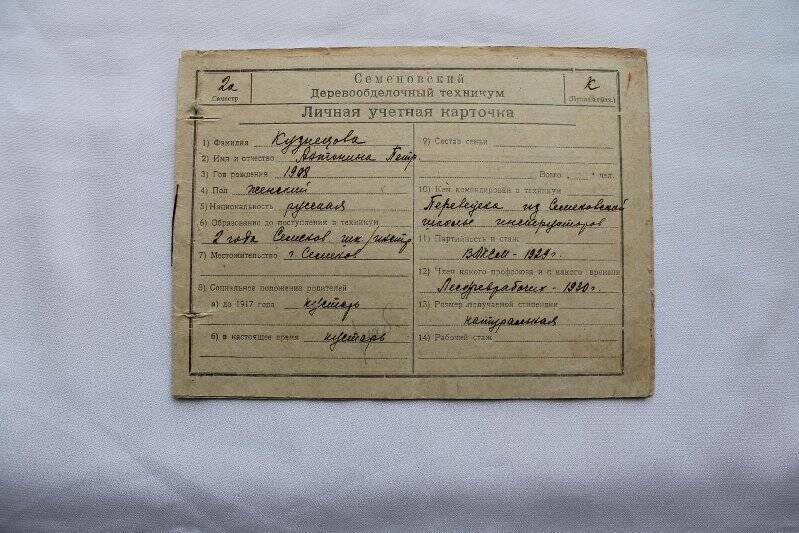 2а
Семестр
Семеновский
Деревообделочный техникум
К
Личная учетная карточка
1) Фамилия Кузнецова
2) Имя и отчество Антонина Петр.
3) Год рождения 1908
4) Пол женский
5) Национальность русская
6) Образование до поступления в техникум
2 года Семенов. шк. /инстр
7) Местожительство г. Семенов
8) Социальное положение родителей
а) до 1917 года кустарь
б) в настоящее время кустарь
9) Состав семьи
Всего " " чел.
10) Кем командирован в техникум
Переведена из Семеновской
школы инструкторов
11) Партийность и стаж
ВЛКСМ - 1929 г.
12) Член какого профсоюза и с какого времени
Лесдреврабочих - 1930 г.
13) Размер получаемой стипендии
натуральная
14) Рабочий стаж